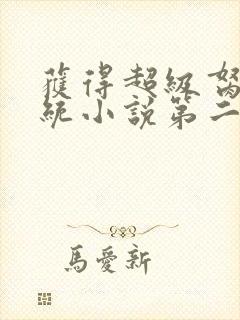 獲得超級努
統小說第二
馬愛新